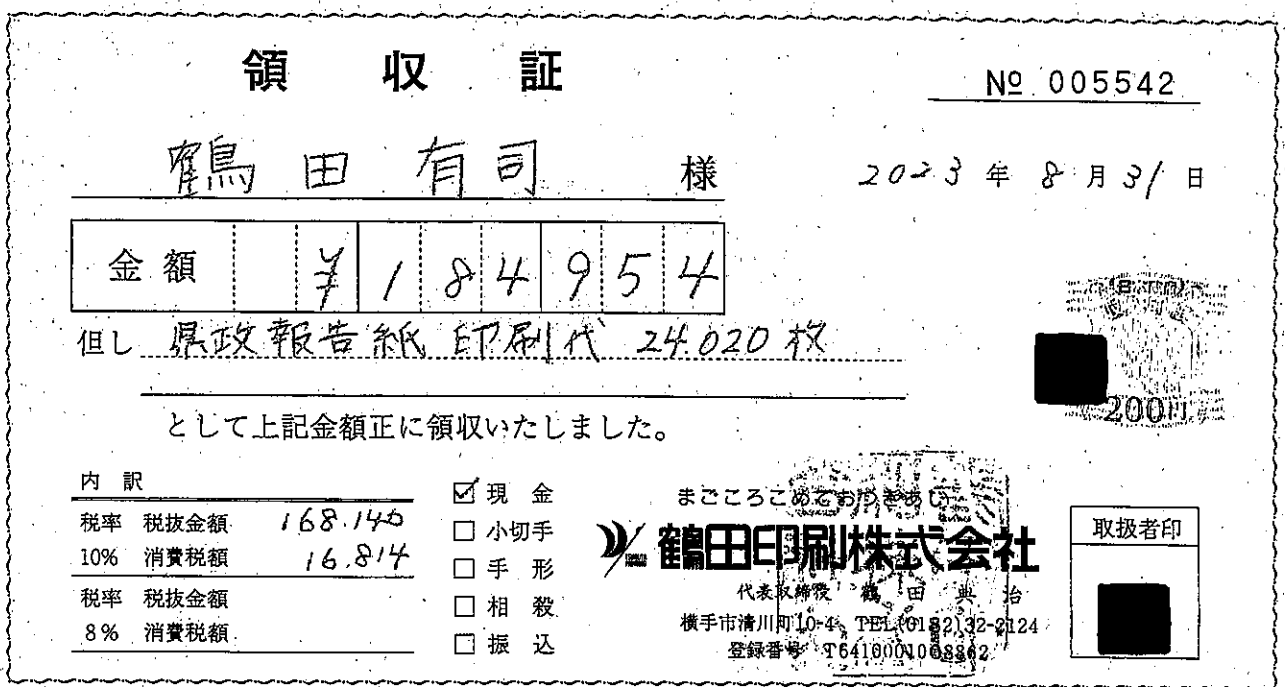 領収証
№ 005542
鶴田有司 様
2023年8月31日
金額 ¥184954
但し 県政報告紙 印刷代 24.020枚
として上記金額正に領収いたしました。
内訳
税率 税抜金額 168.140
10% 消費税額 16.814
税率 税抜金額
8% 消費税額
☑ 現金
□ 小切手
□ 手形
□ 相殺
□ 振込
200円
まごころこめておつきあい
鶴田印刷株式会社
代表取締役 鶴田典治
横手市清川町10-4 TEL(0182)32-2124
登録番号
取扱者印